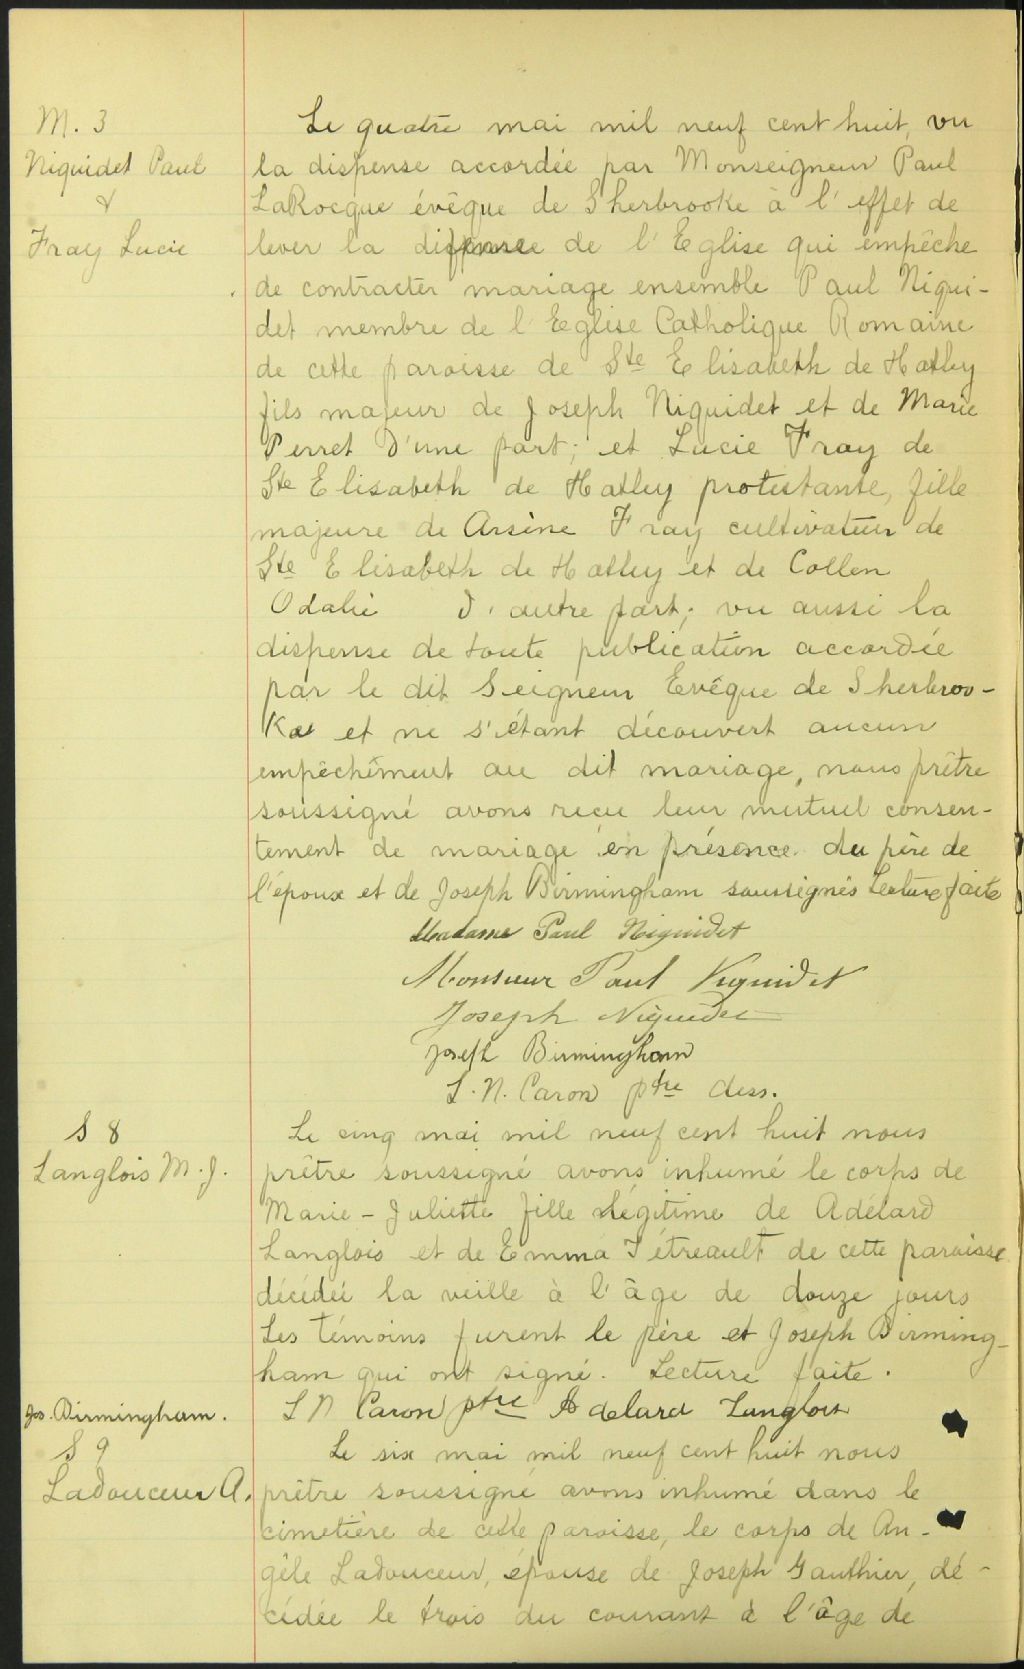 M. 3
Niquidet Paul
&
Fray Lucie
Le quatre mai mil neuf cent huit, vu
la dispense accordée par Monseigneur Paul
LaRocque évêque de Sherbrooke à l'effet de
lever la défense de l'Eglise qui empêche
de contracter mariage ensemble Paul Niqui-
det membre de l'Eglise Catholique Romaine
de cette paroisse de Ste Elisabeth de Hatley
fils majeur de Joseph Niquidet et de Marie
Perret d'une part; et Lucie Fray de
Ste Elisabeth de Hatley protestante, fille
majeure de Arsène Fray cultivateur de
Ste Elisabeth de Hatley et de Collen
Odalie d'autre part; vu aussi la
dispense de toute publication accordée
par le dit Seigneur Evêque de Sherbroo-
ke et ne s'étant découvert aucun
empêchement au dit mariage, nous prêtre
soussigné avons reçu leur mutuel consen-
tement de mariage en présence du père de
l'époux et de Joseph Birmingham soussignés Lecture faite
Madame Paul Niquidet
Monsieur Paul Niquidet
Joseph Niquidet
Joseph Birmingham
L. N. Caron ptre dess.
S 8
Langlois M. J.
Le cinq mai mil neuf cent huit nous
prêtre soussigné avons inhumé le corps de
Marie-Juliette fille légitime de Adélard
Langlois et de Emma Tétreault de cette paroisse
décédée la veille à l'âge de douze jours
Les témoins furent le père et Joseph Birming-
ham qui ont signé. Lecture faite.
Jos. Birmingham. L N Caron ptre Adelard Langlois
S 9
Ladouceur A.
Le six mai mil neuf cent huit nous
prêtre soussigné avons inhumé dans le
cimetière de cette paroisse, le corps de An-
gèle Ladouceur, épouse de Joseph Gauthier, dé-
cédée le trois du courant à l'âge de